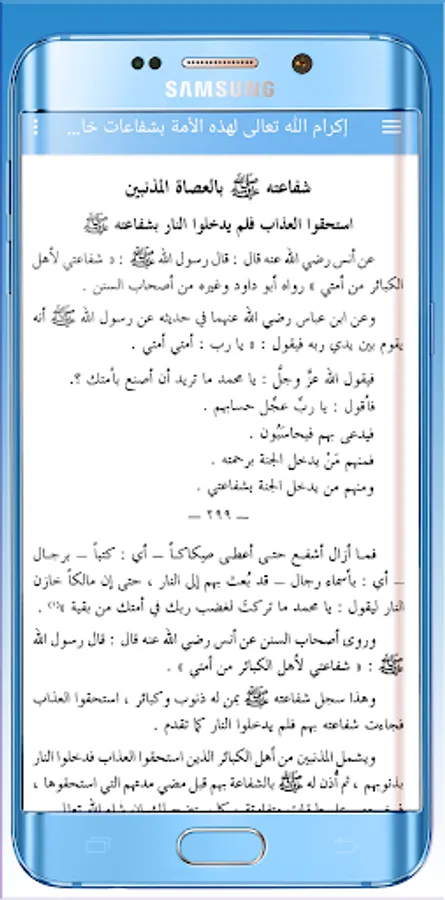 SAMSUNG
إكرام الله تعالى لهذه الأمة بشفاعات خا...
شفاعته ﷺ بالعصاة المذنبين
استحقوا العذاب فلم يدخلوا النار بشفاعته ﷺ
عن أنس رضي الله عنه قال : قال رسول الله ﷺ : « شفاعتي لأهل
الكبائر من أمتي » رواه أبو داود وغيره من أصحاب السنن .
وعن ابن عباس رضي الله عنهما في حديثه عن رسول الله ﷺ أنه
يقوم بين يدي ربه فيقول : « يا رب : أمتي أمتي .
فيقول الله عزَّ وجلَّ : يا محمد ما تريد أن أصنع بأمتك ؟.
فأقول : يا ربِّ عجِّل حسابهم .
فيدعى بهم فيحاسَبُون .
فمنهم مَنْ يدخل الجنة برحمته .
ومنهم من يدخل الجنة بشفاعتي .
– ٢٩٩ –
فمـا أزال أشفـع حتـى أعطـى صِكاكـاً – أي : كتبـاً – برجـال
– أي : بأسماء رجال – قد بُعث بهم إلى النار ، حتى إن مالكاً خازن
النار ليقول : يا محمد ما تركتَ لغضب ربك في أمتك من بقية »(١) .
وروى أصحاب السنن عن أنس رضي الله عنه قال : قال رسول الله
ﷺ : « شفاعتي لأهل الكبائر من أمتي » .
وهذا سجل شفاعته ﷺ بمن له ذنوب وكبائر ، استحقوا العذاب
فجاءت شفاعته بهم فلم يدخلوا النار كما تقدم .
ويشمل المذنبين من أهل الكبائر الذين استحقوا العذاب فدخلوا النار
بذنوبهم ، ثم أُذن له ﷺ بالشفاعة بهم قبل مضي مدتهم التي استحقوها ،